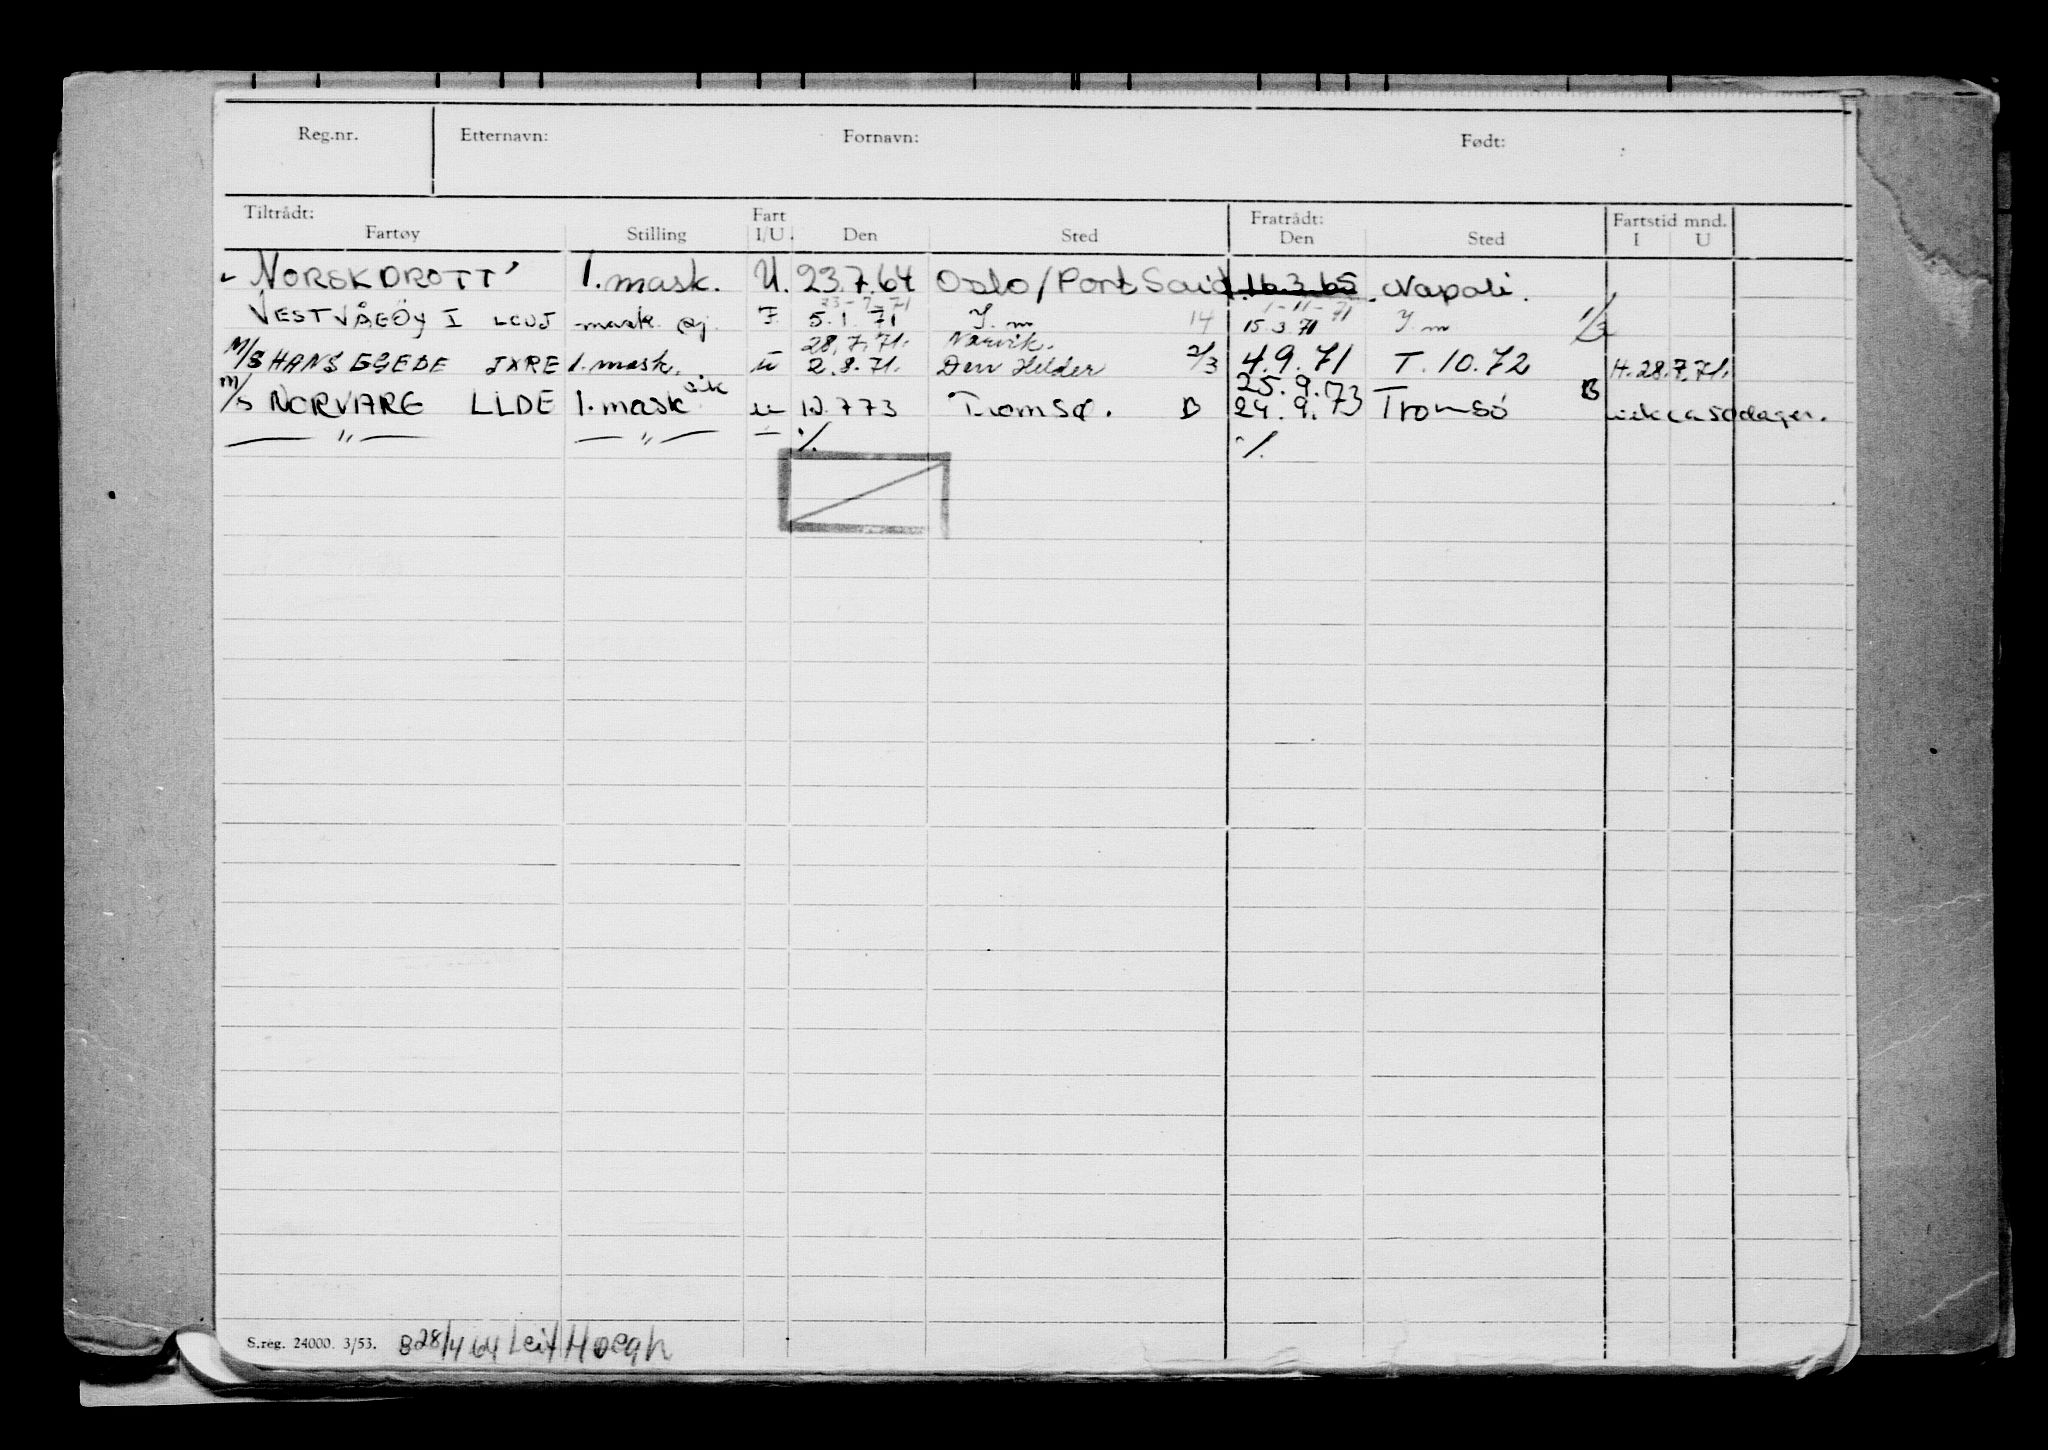 Reg.nr. Etternavn: Fornavn: Født:
Tiltrådt: Fart Fratrådt: Fartstid mnd.
Fartøy Stilling I/U. Den Sted Den Sted I U
NORSKDROTT' 1. mask. U. 23.7.64 Oslo/Port Said 16.3.65 Napoli.
23-7-71 1-11-71
VESTVÅGÖY I LCUJ mask. F 5.1.71 I.m 14 15.3.71 I.m 1/3
28.7.71. Narvik.
M/S HANS EGEDE JXRE 1. mask. U 2.8.71. Den Helder 2/3 4.9.71 T.10.72 H.28.7.71.
25.9.73
M/S NORVARG LLDE 1. mask U 12.773 Tromsø. B 24.9.73 Tromsö B 50dager.
— " — — " — " ·/. ·/.
S.reg. 24000. 3/53. B 28/4 64 Leif Hoegh